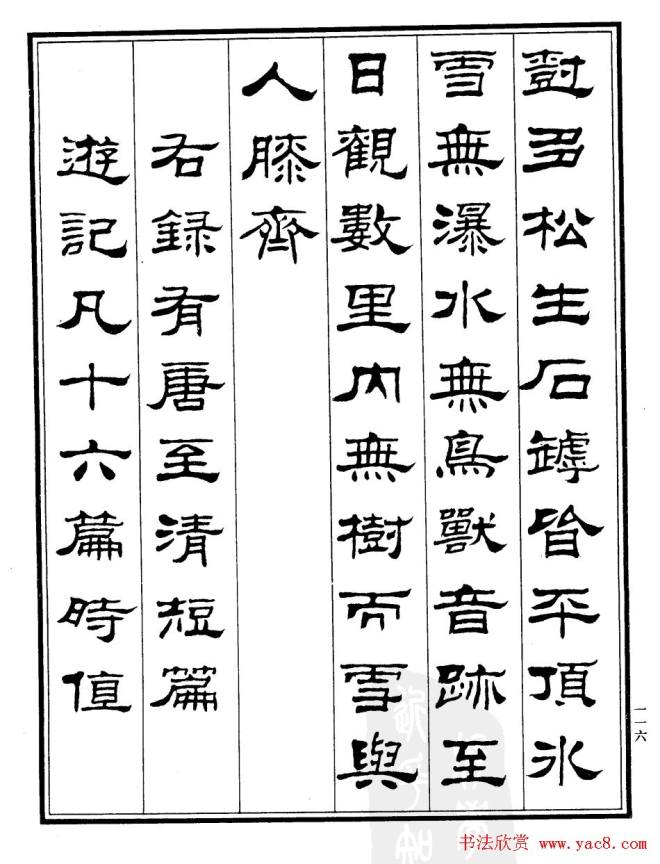 尌多松生石罅皆平頂冰
雪無瀑水無鳥獸音跡至
日觀數里內無樹而雪與
人膝齊
右錄有唐至清短篇
遊記凡十六篇時值
一一六
书法欣赏 www.yac8.com